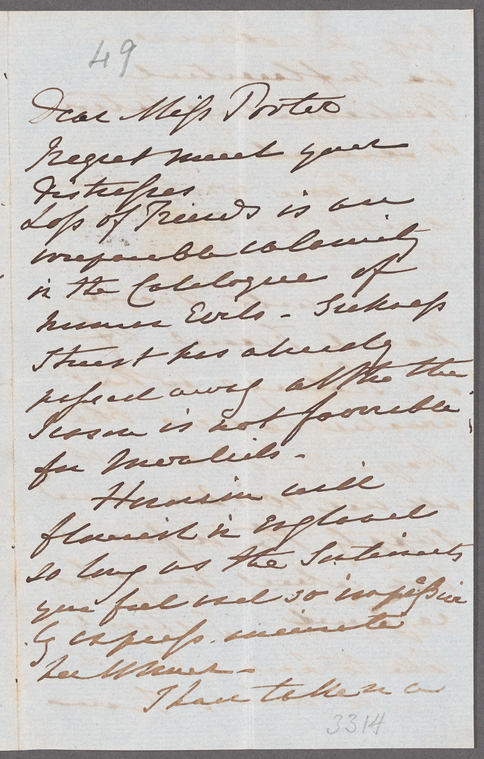 49
Dear Miss Porter
I regret much your
distresses
Loss of Friends is an
irreparable calamity
in the Catalogue of
Human Evils - Sickness
I trust has already
passed away altho the
Season is not favorable
for Invalids -
Heroism will
flourish in England
so long as the Sentiments
you feel and so
ly express. animate
I have taken a
3314